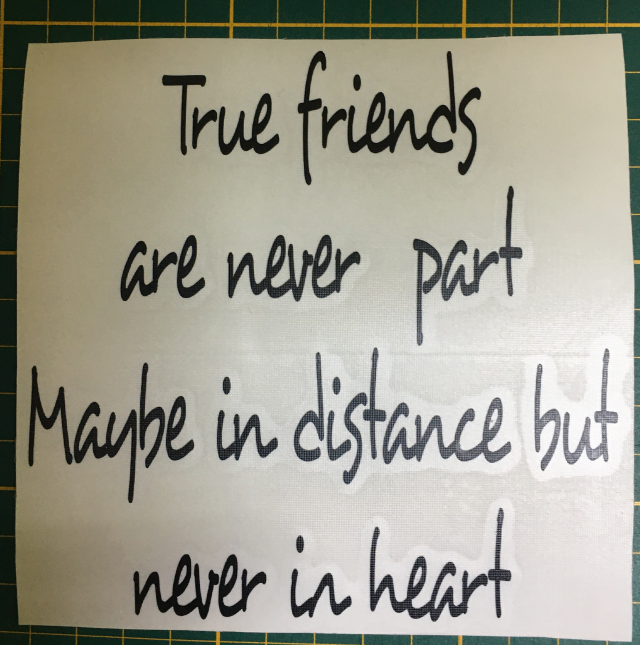 True friends
are never part
Maybe in distance but
never in heart